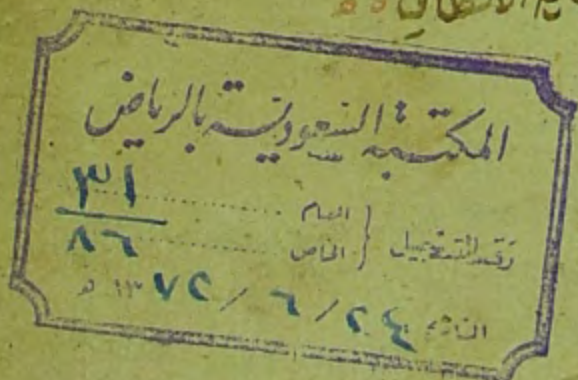 المكتبة السعودية بالرياض
رقم التسجيل { العام ٣١
الخاص ٨٦
التاريخ ٢٤ / ٦ / ١٣٧٢ هـ